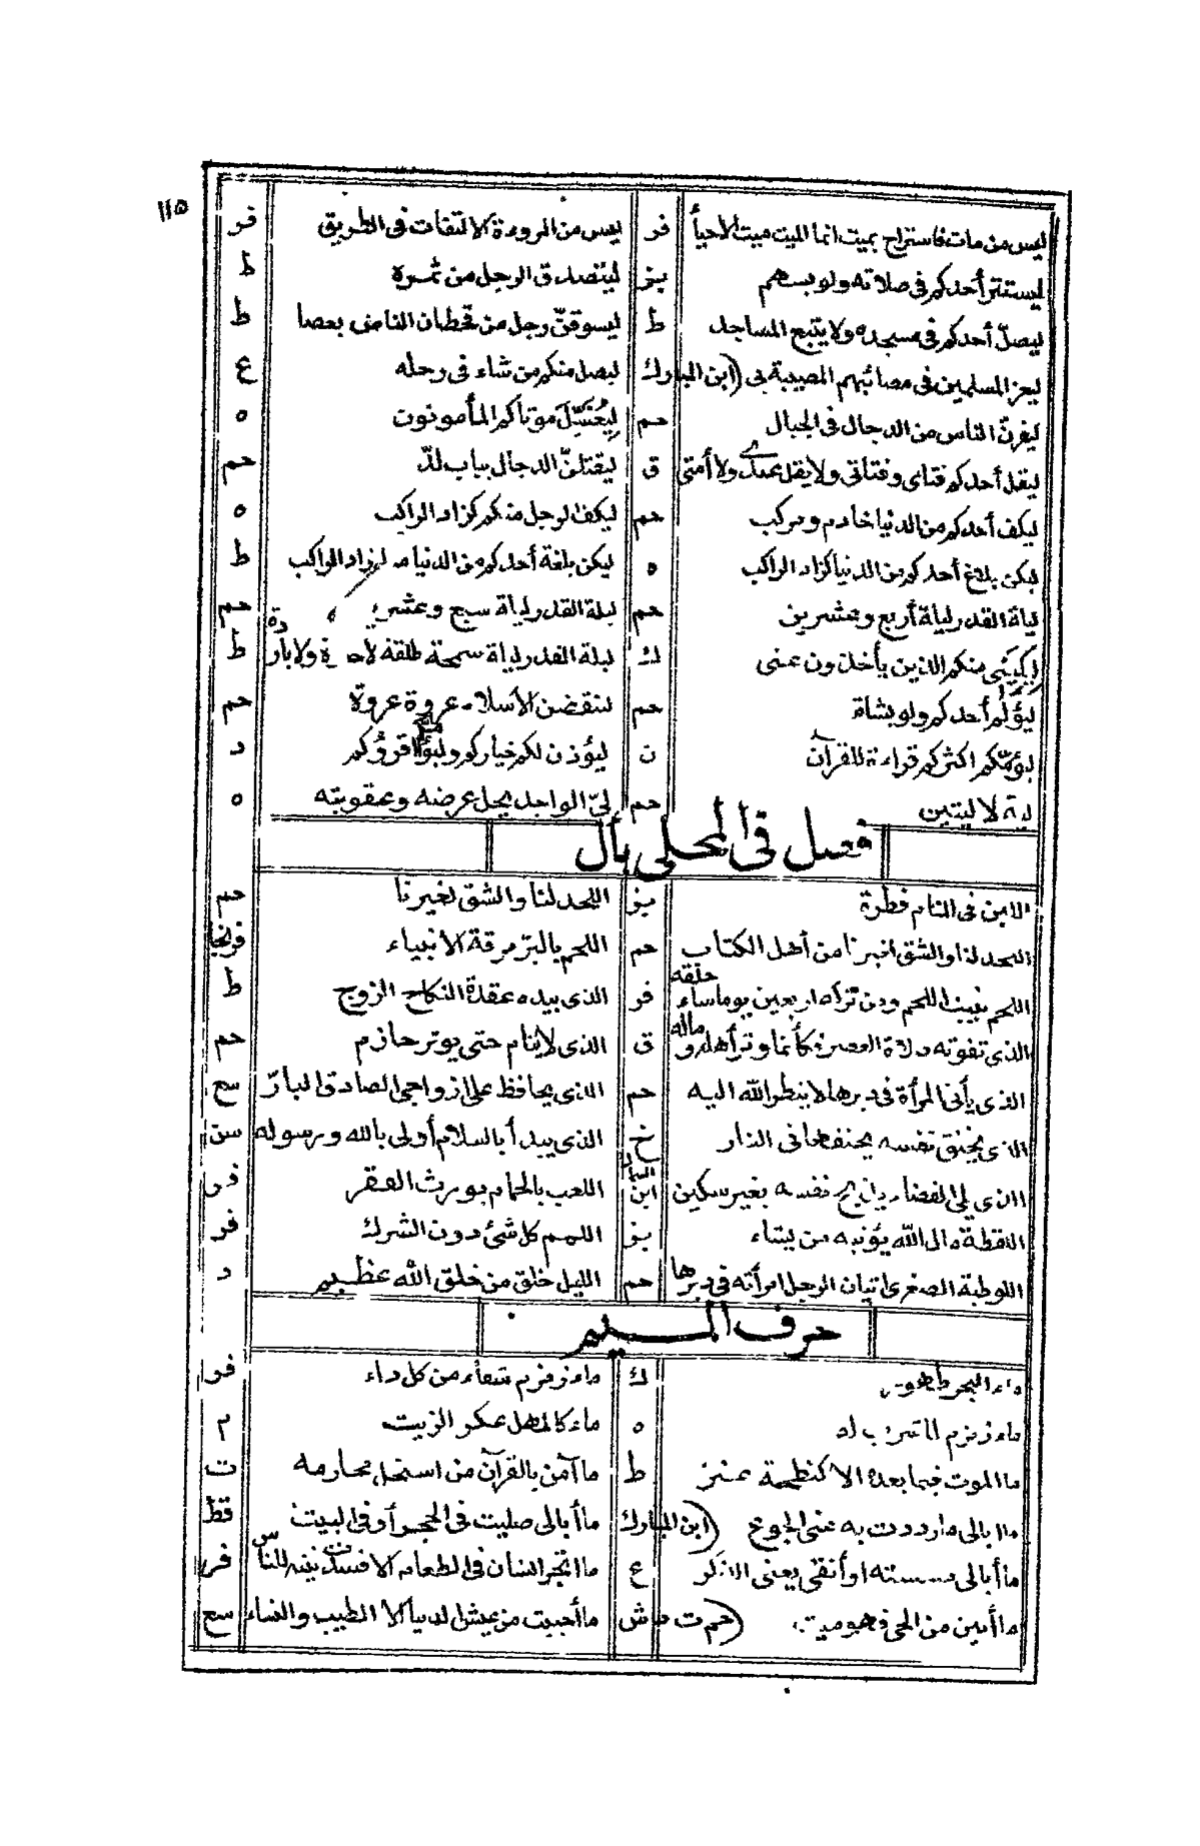 ١١٥
ليس من مات فاستراح بميت انما الميت ميت الأحيأ فر ليس من المروءة الالتفات فى الطريق فر
ليستتر أحدكم فى صلاته ولو بسهم بز ليتصدق الرجل من تمره ط
ليصلّ أحدكم فى مسجده ولا يتتبع المساجد ط ليسوقنّ رجل من قحطان الناس بعصا ط
ليعز المسلمين فى مصائبهم المصيبة بى (ابن المبارك ليصل منكم من شاء فى رحله ع
ليفرنّ الناس من الدجال فى الجبال حم ليُغَسِّلَ موتاكم المأمونون ه
ليقل أحدكم فتاى وفتاتى ولا يقل عبدى ولا أمتى ق ليقتلنّ الدجال بباب لدّ حم
ليكف أحدكم من الدنيا خادم ومركب حم ليكف الرجل منكم كزاد الراكب ه
ليكن بلاغ أحدكم من الدنيا كزاد الراكب ه ليكن بلغة أحدكم من الدنيا كزاد الراكب ط
ليلة القدر ليلة أربع وعشرين حم ليلة القدر ليلة سبع وعشرين حم
ليكفينى منكم الذين يأخذون عنى ك ليلة القدر ليلة سمحة طلقة لا حارة ولا باردة ط
ليؤلم أحدكم ولو بشاة حم لينقضن الاسلام عروة عروة حم
ليؤمّكم اكثركم قراءة للقرآن ن ليؤذن لكم خياركم وليؤمكم اقرؤكم د
لية لا ليتين حم ليّ الواجد يحل عرضه وعقوبته ه
فصل فى المحلى بأل
اللبن فى المنام فطرة بز اللحد لنا والشق لغيرنا حم
اللحد لنا والشق لغيرنا من أهل الكتاب حم اللحم بالبر مرقة الانبياء
اللحم ينبت اللحم ومن تركه اربعين يوما ساء خلقه فر الذى بيده عقدة النكاح الزوج ط
الذى تفوته صلاة العصر كأنما وتر أهله وماله ق الذى لاينام حتى يوتر حازم حم
الذى يأتى المرأة فى دبرها لا ينظر الله اليه حم الذى يحافظ على ازواجى الصادق البارّ سع
الذى يخنق نفسه يخنقها فى النار خ الذى يبدأ بالسلام أولى بالله ورسوله سن
الذى يلى القضاء يذبح نفسه بغير سكين ابن المبارك اللعب بالحمام يورث الفقر فر
اللقطة مال الله يؤتيه من يشاء بز اللمم كل شئ دون الشرك فر
اللوطية الصغرى اتيان الرجل امرأته فى دبرها حم الليل خلق من خلق الله عظيم د
حرف الميم
ماء البحر طهور ك ماء زمزم شفاء من كل داء فر
ماء زمزم لما شرب له ه ماء كالمهل عكر الزيت م
ما الموت فيما بعده الا كنطحة عنز ط ما آمن بالقرآن من استحل محارمه ت
ما ابالى ما رددت به عنى الجوع (ابن المبارك ما أبالى صليت فى الحجر أو فى البيت قط
ما أبالى مسسته او أنفى يعنى الذكر ع ما اتجر الناس فى الطعام الا فر
ما أبين من الحى فهو ميت (حم ت ما أحببت من عيش الدنيا الا الطيب والنساء سع